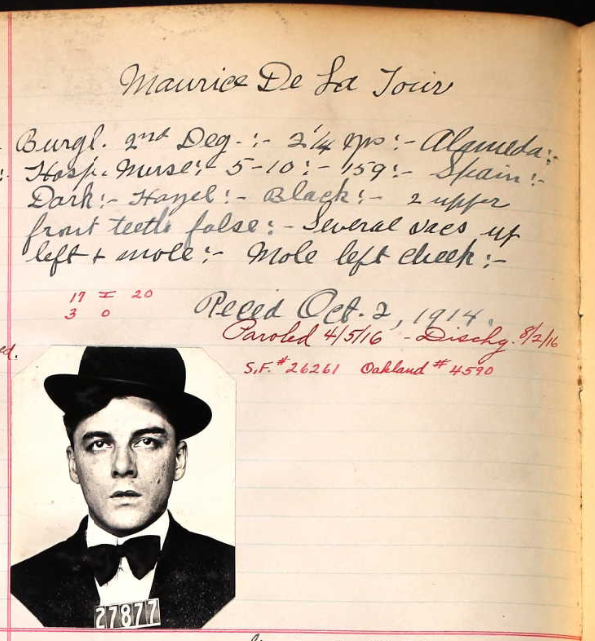 Maurice De La Tour
Burgl. 2nd Deg. :- 2 1/4 yrs :- Alameda :-
Hosp. Nurse :- 5-10 :- 159 :- Spain :-
Dark :- Hazel :- Black :- 2 upper
front teeth false :- Several vacs up
left + mole :- Mole left cheek :-
17 I 20
3 O
Oct. 2, 1914.
Paroled 4/5/16 - Dischg. 8/2/16
ed.
S.F. # 26261 Oakland # 4590
27877